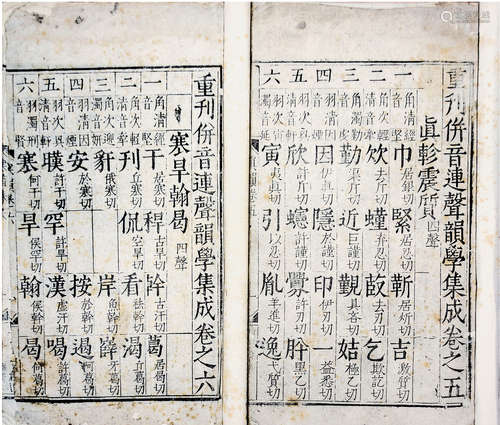 重刊併音連聲韻學集成卷之五
眞軫震質四聲
一 角清經音堅 巾居銀切 緊居忍切 靳居焮切 吉激質切
二 角次輕清音 去斤切 螼弃忍切 菣去刃切 乞欺訖切
三 角濁勤濁音 勤渠斤切 近巨謹切 覲具吝切 姞極乙切
四 羽清因音 因伊眞切 隱於謹切 印伊刃切 一益悉切
五 羽次清音 欣許斤切 許謹切 許刃切 肸黑乙切
六 羽次濁音延 寅夷眞切 引以忍切 胤羊進切 逸弋質切
重刊併音連聲韻學集成卷之六
寒旱翰曷四聲
一 角清經音堅 干居寒切 稈古旱切 旰古汗切 葛居曷切
二 角次輕清音牽 刊丘寒切 侃空旱切 看袪幹切 渴丘葛切
三 角次濁音妍 豻俄寒切 岸魚幹切 牙葛切
四 羽清因音 安於寒切 按於幹切 遏阿葛切
五 羽次清音 許干切 罕許旱切 漢虛汗切 喝許葛切
六 羽濁音賢 寒何干切 旱侯罕切 翰侯幹切 曷何葛切